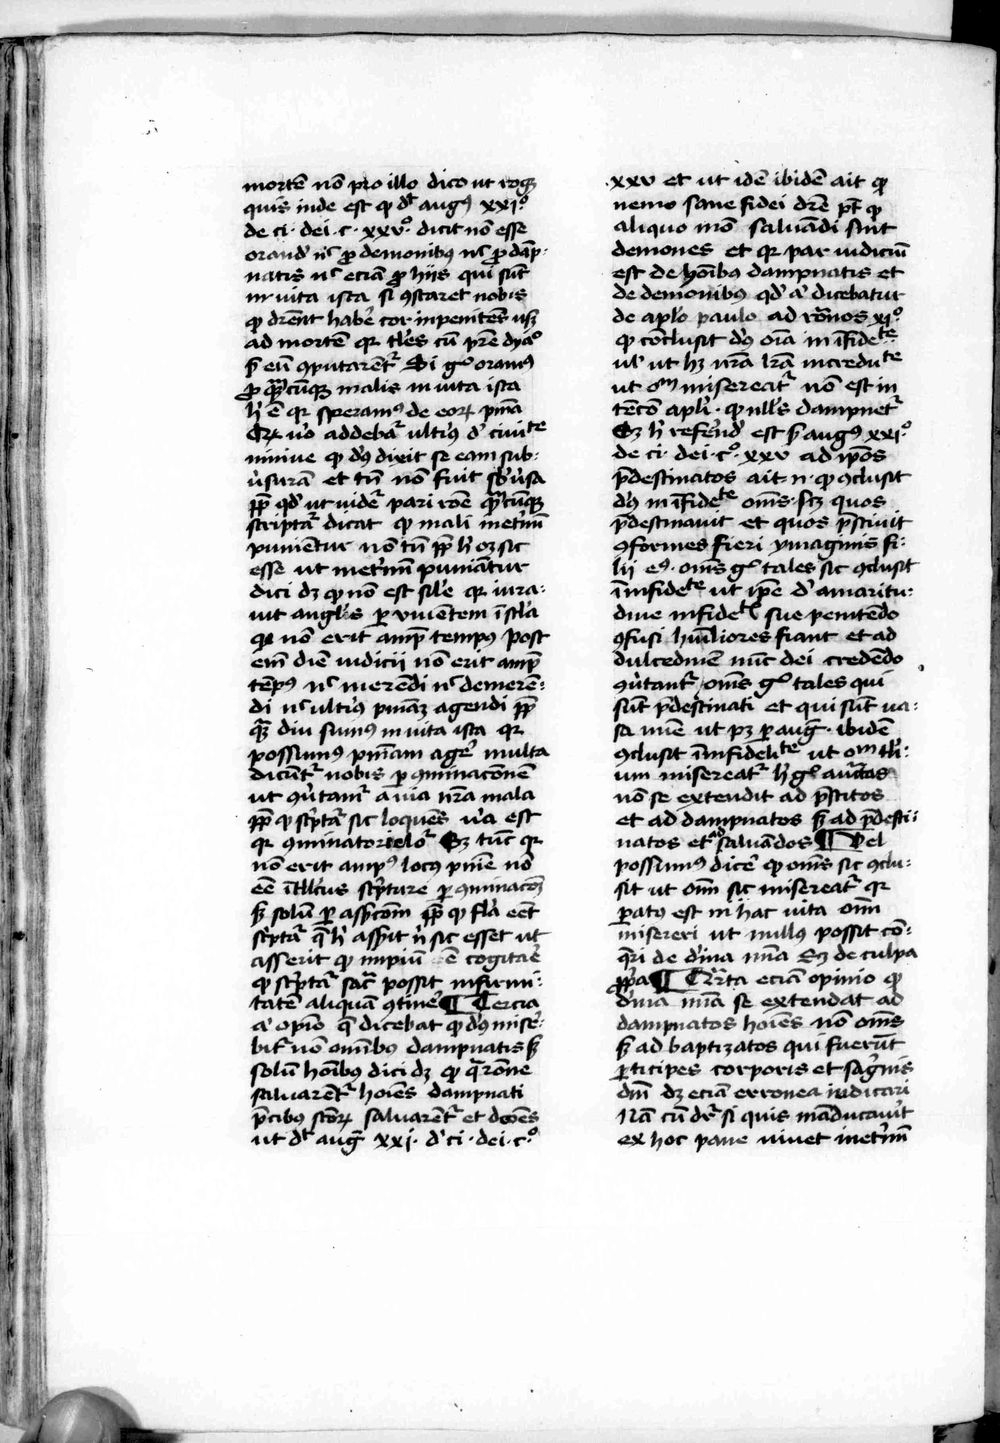 mortē nō pro illo dico ut rogꝫ
quis inde est qꝫ dt̄ augꝰ xxjº
de ci · dei · c · xxvº dicit nō esse
orand' nͨ ꝓ demonibꝰ nͨ ꝓ dāp-
natis nͨ eciā ꝓ hiis qui sūt
in vita ista si ꝯstaret nobis
ꝙ hab'e cor inpenitēs usqꝫ
ad mortē qr tl'es cū p̄re dyaº
s̄ eū ꝯputarent᷑ Si gº oramꝰ
ꝓ qͣcūqꝫ malis in vita ista
h' ē qr speramꝰ de eoꝝ pn̄ia
v'o addeba᷑ ulti'ꝰ d' ciuitᵉ
niniue ꝙ dꝰ dixit se eam sub-
u'surā et tn̄ nō fuit sb'u'sa
ꝓp̄ qd' ut uide᷑ pari rōe qͣcūqꝫ
script᷑a dicat ꝙ mali inet'nū
punientur nō tn̄ ꝓp̄ h' oꝫ sic
esse ut inet'nū puniātur
dici dꝫ ꝙ nō est sil'e qr iura-
uit angl'us ꝑ viuentem ī scl'a
qꝛ nō erit ampꝰ tempꝰ post
em̄ diē iudicii nō erit ampꝰ
tēpꝰ nͨ merēdi nͨ demerē-
di nͨ ulti'ꝰ pn̄iaꝫ agendi ꝓp̄
qͣ diu sumꝰ in vita ista qr
possumꝰ pn̄iam ag'e multa
dicūt᷑ nobis ꝑ ꝯminacōnē
ut ꝯu'tam᷑ a via nr̄a mala
ꝓp̄ ꝙ sc'ptͣ sic loquēs v'a est
qr ꝯminatorie loq᷑ Sꝫ tūc qr
nō erit ampꝰ locꝰ pnīe nō
eē ītll'cus sc'pture ꝑ ꝯminacōꝫ
sꝫ solū ꝑ ass'cōm qͣ ꝙ fl'a eēt
sc'ptͣ q̄ h' ass'it n' sic esset ut
asserit ꝙ impiū ē cogitar'e
ꝙ sc'ptͣ sac᷑ possit infirmi-
tatē aliquā ꝯtine'e ¶ Tercia
a' opīo q̄ dicebat ꝙ dꝰ mis'e-
bit᷑ nō om̄ibꝰ dampnatis sꝫ
solū hoībꝰ dici dꝫ ꝙ q̄ rōne
saluarent᷑ hoīes dampnati
p'cibꝰ sctōꝝ saluarent᷑ et dōēs
ut dt̄ augꝰ xxi · d' ci · dei · cº
xxv et ut idē ibidē ait ꝙ
nemo sane fidei dr̄e pt̄ ꝙ
aliquo mō saluādi sint
demones et qr par iudiciū
est de hoībꝰ dampnatis et
de demonibꝰ qd' a' dicebatur
de apl'o paulo ad rōnos xjº
ꝙ conclusit dꝰ oīa in īfidetᵉ
ul' ut hꝫ nr̄a lr̄a increduᵗᵉ
ut om̄ misereat᷑ nō est in
tēcō apl'i · ꝙ null's dampnet᷑
Sꝫ h' refe'nd' est s̄ augꝰ xxiº
de ci · dei · cº · xxv ad ip̄os
p̄destinatos ait · n · ꝙ ꝯclusit
dꝰ in īfidetᵉ om̄s · sꝫ quos
p̄destinauit et quos p̄sciuit
ꝯformes fieri ymaginis fi-
lii eꝰ · om̄s gº tales sic ꝯclusit
ī infidetᵉ ut ip̄e d' amaritu-
dine infidetᵉ sue penitēdo
ꝯfusi hūiliores fiant et ad
dulcedinē mīe dei credēdo
ꝯu'tant᷑ om̄s gº tales qui
sūt p̄destinati et qui sūt ua-
sa mīe ut pꝫ ꝑ augꝰ · ibidē
ꝯclusit ī infidelitᵉ ut om̄ tl'i-
um misereat᷑ h' gº auct̄as
nō se extendit ad p̄scitos
et ad dampnatos sꝫ ad p̄desti-
natos et ad saluādos ¶ Vel
possumꝰ dice' ꝙ om̄s sic ꝯclu-
sit ut om̄ sic misereat᷑ qr
paꝰ est in hac uita om̄
misereri ut nullꝰ possit cō-
q̄ri de d'ina mīa Sꝫ de culpa
ꝓp̄a ¶ Qͣrta eciam opinio ꝙ
d'ina mīa se extendat ad
dampnatos hoīes nō om̄s
sꝫ ad baptizatos qui fuerūt
ꝑticipes corporis et sag'nis
dn̄i dꝫ eciā erronea iudicari
Nā cū dr̄ si quis māducauīt
ex hoc pane uiuet inet'nū